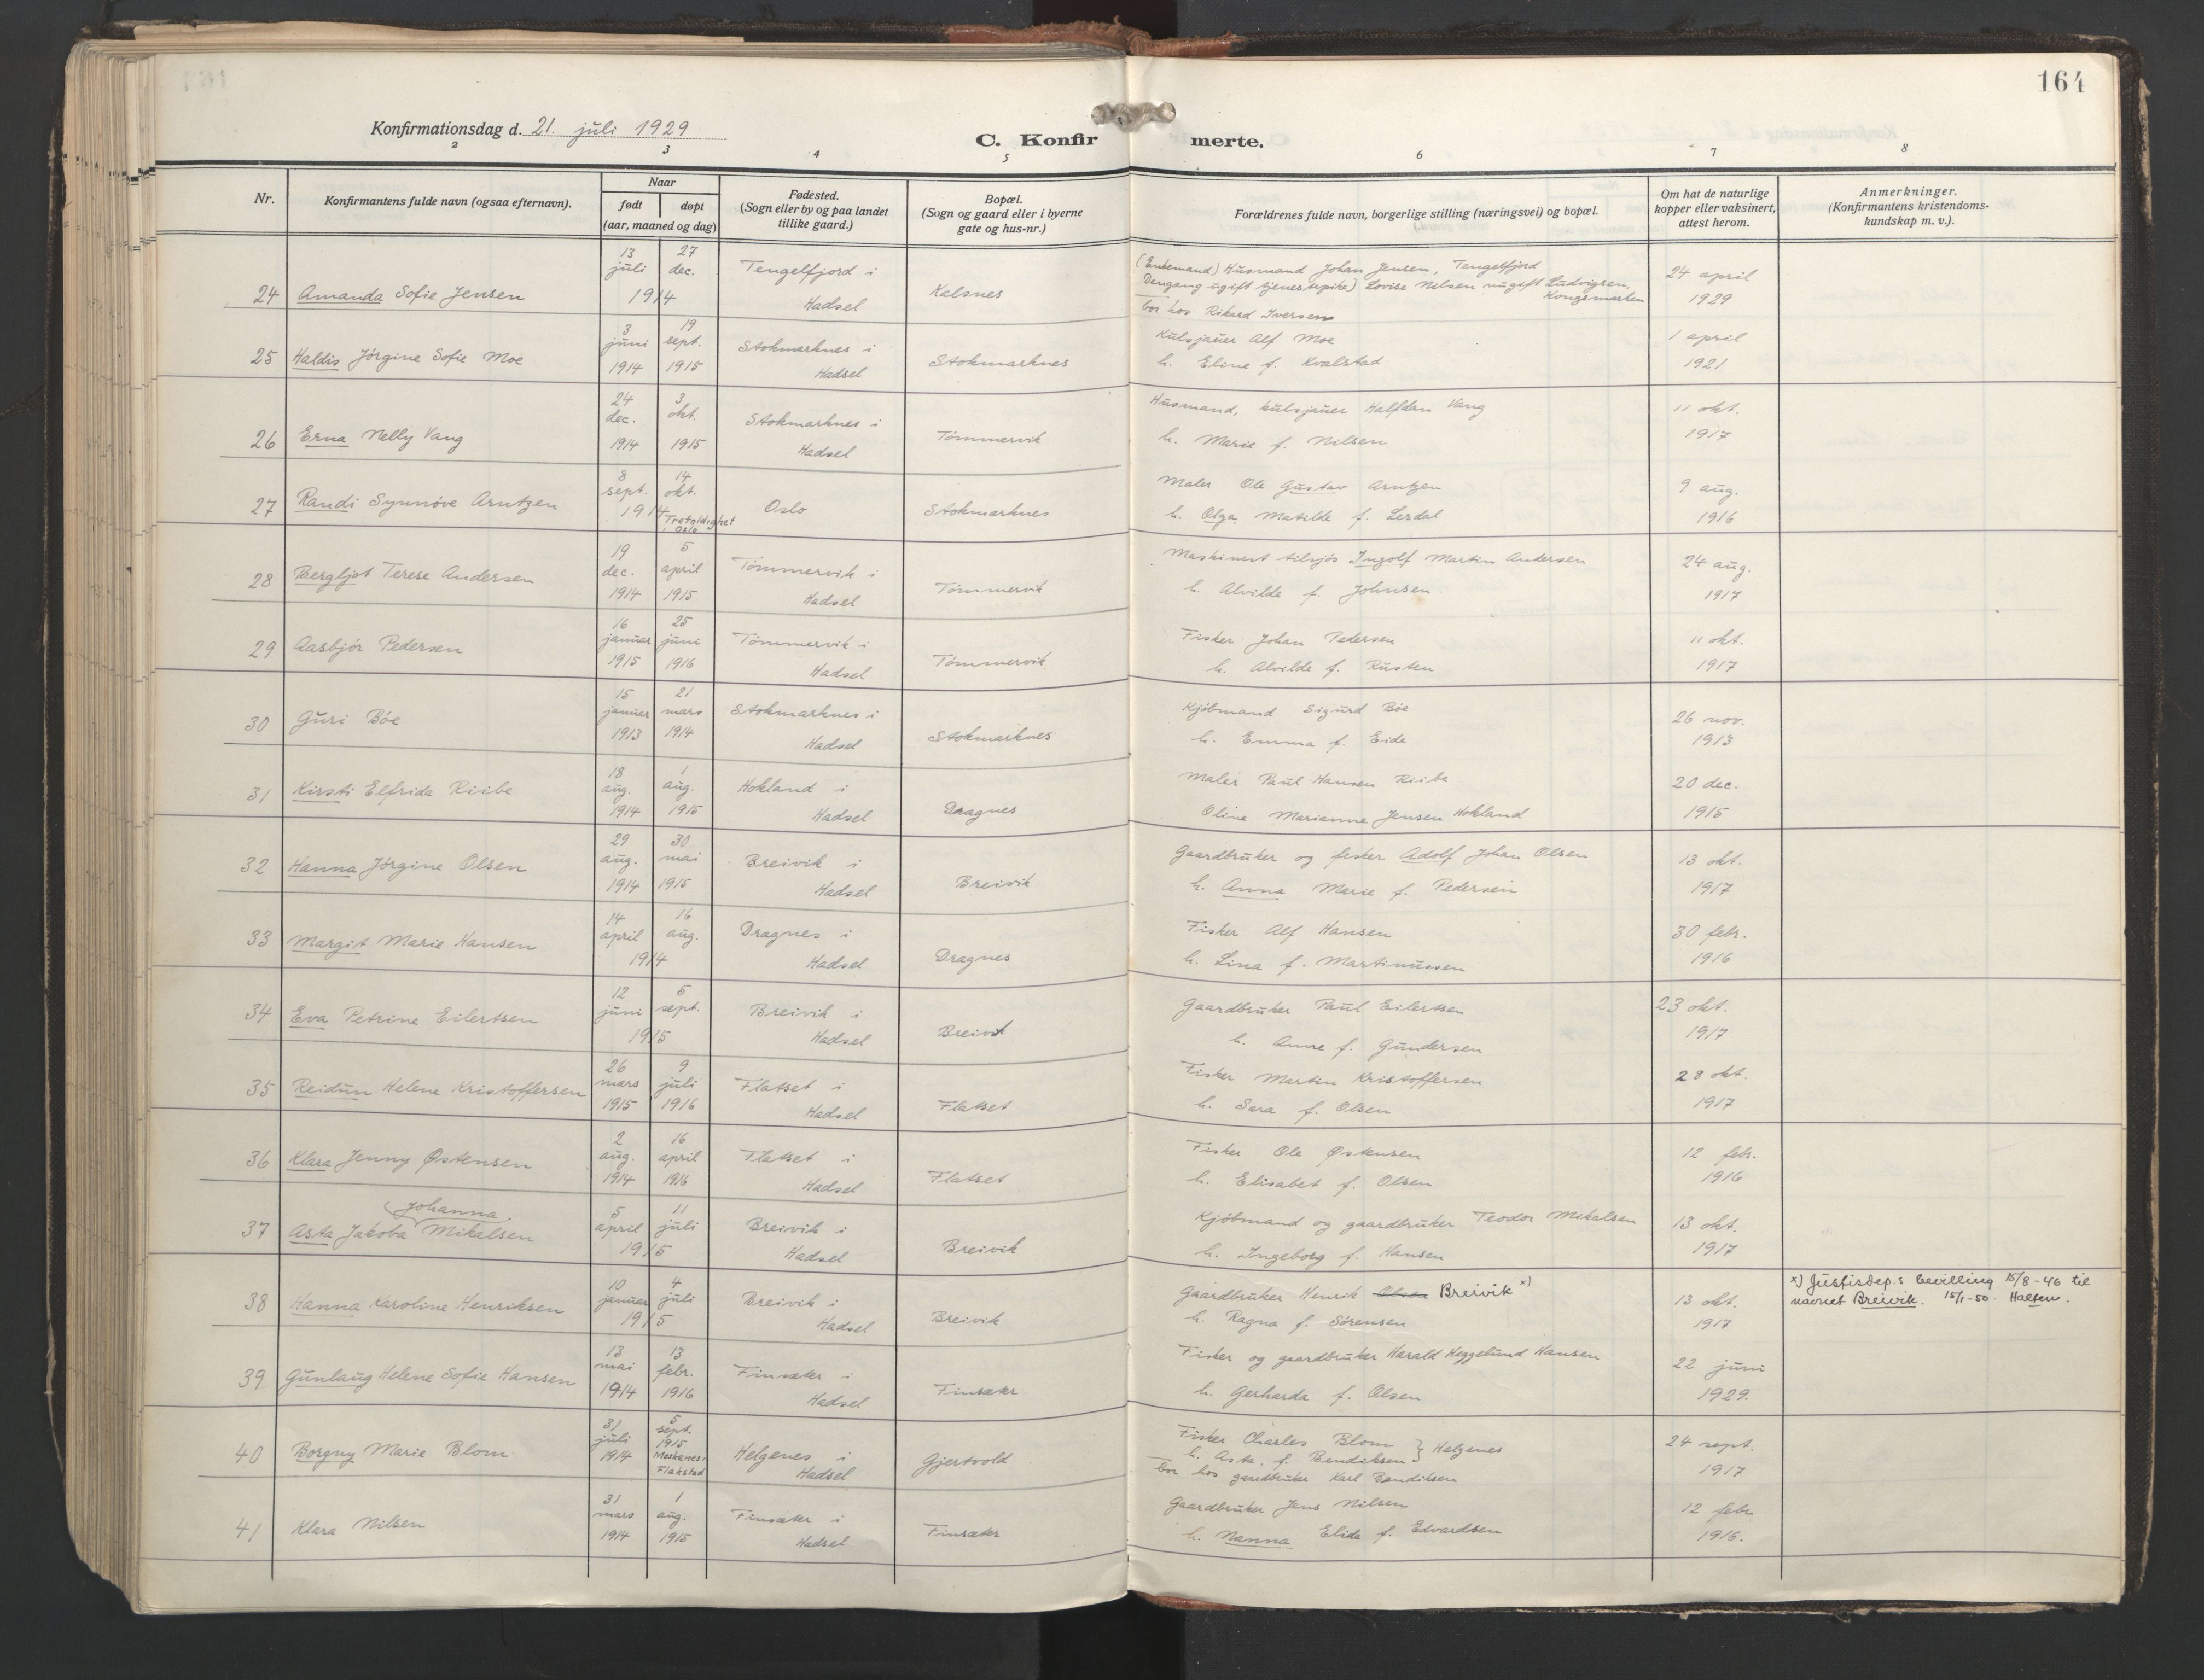 164
Konfirmationsdag d. 21. juli 1929
C. Konfirmerte.
2 3 4 5 6 7 8
Nr.
Konfirmantens fulde navn (ogsaa efternavn).
Naar
født døpt
(aar, maaned og dag)
Fødested.
(Sogn eller by og paa landet
tillike gaard.)
Bopæl.
(Sogn og gaard eller i byerne
gate og hus-nr.)
Forældrenes fulde navn, borgerlige stilling (næringsvei) og bopæl.
Om hat de naturlige
kopper eller vaksinert,
attest herom.
Anmerkninger.
(Konfirmantens kristendoms-
kundskap m. v.).
24 Amanda Sofie Jensen
13 juli 27 dec. 1914
Tengelfjord i
Hadsel
Kalsnes
(Enkemand) Husmand Johan Jensen, Tengelfjord
Dengang ugift tjenestepike) Lovise Nilsen nu gift Ludvigsen,
Kongsmarken
bor hos Rikard Iversen
24 april
1929
25 Haldis Jórgine Sofie Moe
3 juni 1914
19 sept. 1915
Stokmarknes i
Hadsel
Stokmarknes
Kulsjauer Alf Moe
h. Eline f. Kvalstad
1 april
1921
26 Erna Nelly Vang
24 dec. 1914
3 okt. 1915
Stokmarknes i
Hadsel
Tómmervik
Husmand, kulsjauer Halfdan Vang
h. Marie f. Nilsen
11 okt.
1917
27 Randi Synnóve Arntzen
8 sept. 14 okt. 1914
Trefoldighet
i Oslo
Oslo
Stokmarknes
Maler Ole Gustav Arntzen
h. Olga Matilde f. Lerdal
9 aug.
1916
28 Bergljot Terese Andersen
19 dec. 1914
5 april 1915
Tómmervik i
Hadsel
Tómmervik
Maskinist tilsjós Ingolf Martin Andersen
h. Alvilde f. Johnsen
24 aug.
1917
29 Aasbjór Pedersen
16 januar 1915
25 juni 1916
Tómmervik i
Hadsel
Tómmervik
Fisker Johan Pedersen
h. Alvilde f. Rusten
11 okt.
1917
30 Guri Bóe
15 januar 1913
21 mars 1914
Stokmarknes i
Hadsel
Stokmarknes
Kjóbmand Sigurd Bóe
h. Emma f. Eide
26 nov.
1913
31 Kirsti Elfrida Riibe
18 aug. 1914
1 aug. 1915
Hokland i
Hadsel
Dragnes
Maler Paul Hansen Riibe
Oline Marianne Jensen Hokland
20 dec.
1915
32 Hanna Jórgine Olsen
29 aug. 1914
30 mai 1915
Breivik i
Hadsel
Breivik
Gaardbruker og fisker Adolf Johan Olsen
h. Anna Marie f. Pedersen
13 okt.
1917
33 Margit Marie Hansen
14 april 16 aug. 1914
Dragnes i
Hadsel
Dragnes
Fisker Alf Hansen
h. Lina f. Martinussen
30 febr.
1916
34 Eva Petrine Eilertsen
12 juni 5 sept. 1915
Breivik i
Hadsel
Breivik
Gaardbruker Paul Eilertsen
h. Anne f. Gundersen
23 okt.
1917
35 Reidun Helene Kristoffersen
26 mars 1915
9 juli 1916
Flatset i
Hadsel
Flatset
Fisker Martin Kristoffersen
h. Sara f. Olsen
28 okt.
1917
36 Klara Jenny Østensen
2 aug. 1914
16 april 1916
Flatset i
Hadsel
Flatset
Fisker Ole Østensen
h. Elisabet f. Olsen
12 febr.
1916
Johanna.
37 Asta Jakoba Mikalsen
5 april 11 juli 1915
Breivik i
Hadsel
Breivik
Kjóbmand og gaardbruker Teodor Mikalsen
h. Ingeborg f. Hansen
13 okt.
1917
38 Hanna Karoline Henriksen
10 januar 4 juli 1915
Breivik i
Hadsel
Breivik
Gaardbruker Henrik Olsen Breivik x)
h. Ragna f. Sórensen
13 okt.
1917
x) Justisdep.s bevilling 15/8-46 til
navnet Breivik. 15/1-50. Halsen.
39 Gunlaug Helene Sofie Hansen
13 mai 1914
13 febr. 1916
Finsæter i
Hadsel
Finsæter
Fisker og gaardbruker Harald Heggelund Hansen
h. Gerharda f. Olsen
22 juni
1929.
40 Borgny Marie Blom
31 juli 1914
5 sept. 1915
Moskenes i
Flakstad
Helgenes i
Hadsel
Gjertvold
Fisker Charles Blom
h. Asta f. Bendiksen } Helgenes
bor hos gaardbruker Karl Bendiksen
24 sept.
1917
41 Klara Nilsen
31 mars 1914
1 aug. 1915
Finsæter i
Hadsel
Finsæter
Gaardbruker Jens Nilsen
h. Nanna Elida f. Edvardsen
12 febr
1916.